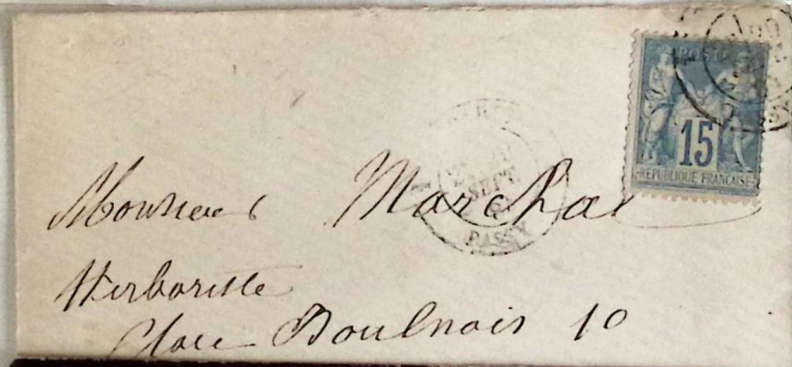 POSTES
15
RÉPUBLIQUE FRANÇAISE
SEPT
PASSY
Monsieur Marchal
Herboriste
Place Boulnois 10